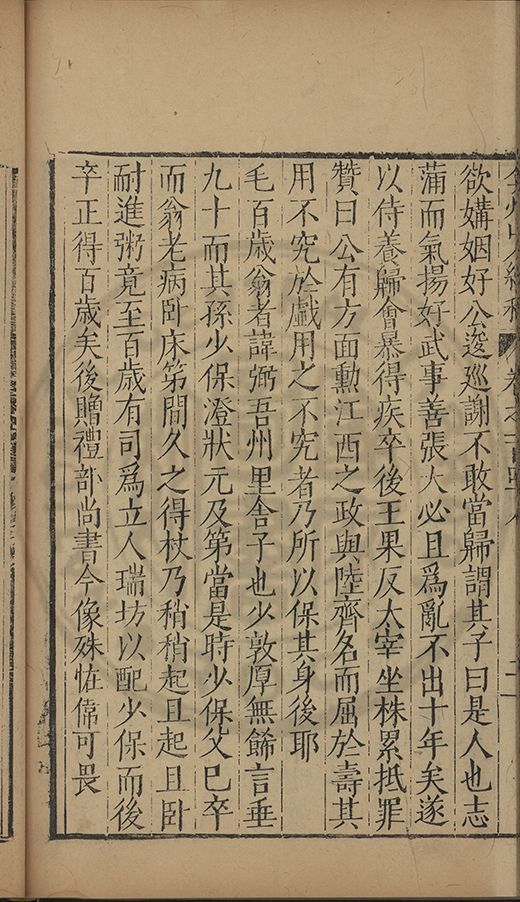 欲媾姻好公逡巡謝不敢當歸謂其子曰是人也志
蒲而氣揚好武事善張大必且爲亂不出十年矣遂
以侍養歸會暴得疾卒後王果反太宰坐株累抵罪
贊曰公有方面勳江西之政與陸齊名而屈於壽其
用不究於戲用之不究者乃所以保其身後耶
毛百歲翁者諱弼吾州里舍子也少敦厚無餙言垂
九十而其孫少保澄狀元及第當是時少保父巳卒
而翁老病卧床笫間久之得杖乃稍稍起且起且卧
耐進粥竟至百歲有司爲立人瑞坊以配少保而後
卒正得百歲矣後贈禮部尚書今像殊恠偉可畏